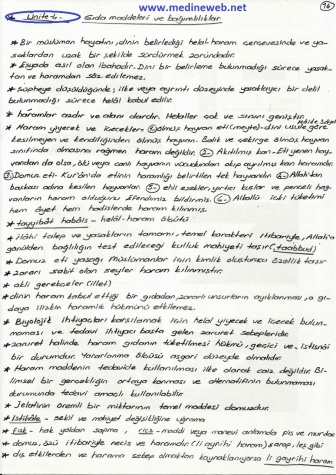 www.medineweb.net
76
* Ünite-4- Gıda maddeleri ve bağımlılıklar
* Bir müslüman hayatını, dinin belirlediği helal-haram çerçevesinde ve ya-
saklardan uzak bir şekilde sürdürmek zorundadır.
* Eşyada asıl olan ibahadır. Dini bir belirleme bulunmadığı sürece yasak-
tan ve haramdan söz edilemez.
* Şüpheye düşüldüğünde; ilke veya ayrıntı düzeyinde yasaklayıcı bir delil
bulunmadığı sürece helal kabul edilir.
* haramlar azdır ve alanı dardır. Helaller çok ve sınırı geniştir.
* Haram yiyecek ve içecekler: 1. ölmüş hayvan eti (meyte) - dini usule göre
kesilmeyen ve kendiliğinden ölmüş hayvan. Balık ve çekirge ölmüş hayvan
sınıfında olmasına rağmen haram değildir. 2. Akıtılmış kan - Eti yenen hay-
vandan da olsa, ölü veya canlı hayvanın vücudundan akıp ayrılmış kan haramdır.
3. Domuz eti - Kur'an'da etinin haramlığı belirtilen tek hayvandır. 4. Allah'tan
başkası adına kesilen hayvanlar. 5. ehli eşekler, yırtıcı kuşlar ve pençeli hay-
vanların haram olduğunu Efendimiz bildirmiş. 6. Alkollü içki tüketimi
hem ayet hem hadislerde haram kılınmış.
* tayyibât habâis - helâl-haram ölçütü
* ilâhi talep ve yasakların tamamı, temel karakteri itibariyle, Allah'a
gönülden bağlılığın test edileceği kulluk mahiyeti taşır (taabbud)
* Domuz eti yasağı Müslümanlar için kimlik oluşturucu özellik taşır
* zararı sabit olan şeyler haram kılınmıştır.
* akli gerekçeler (illet)
* dinin haram kabul ettiği bir gıdadan, zararlı unsurların ayıklanması, o gı-
daya ilişkin haramlık hükmünü etkilemez.
* Biyolojik ihtiyaçları karşılamak için helal yiyecek ve içecek bulun-
maması ve tedavi ihtiyacı başta gelen zaruret sebepleridir.
* zaruret halinde haram gıdanın tüketilmesi hükmü, geçici ve istisnâi
bir durumdur. Yararlanma ölçüsü asgari düzeyde olmalıdır.
* Haram maddenin tedavide kullanılması ilke olarak caiz değildir. Bi-
limsel bir gerçekliğin ortaya konması ve alternatifinin bulunmaması
durumunda tedavi amaçlı kullanılabilir
* Jelatinin önemli bir miktarının temel maddesi domuzdur.
* istihâle - şekil ve mahiyet değişikliğine uğrama
* fısk - hak yoldan sapma, rics - maddi veya manevi anlamda pis ve murdar
* domuz, özü itibariyle necis ve haramdır. (li aynihi haram) şarap, leş gibi
* dış etkilerden ve harama sebep olmaktan kaynaklanıyorsa li gayrihi haram